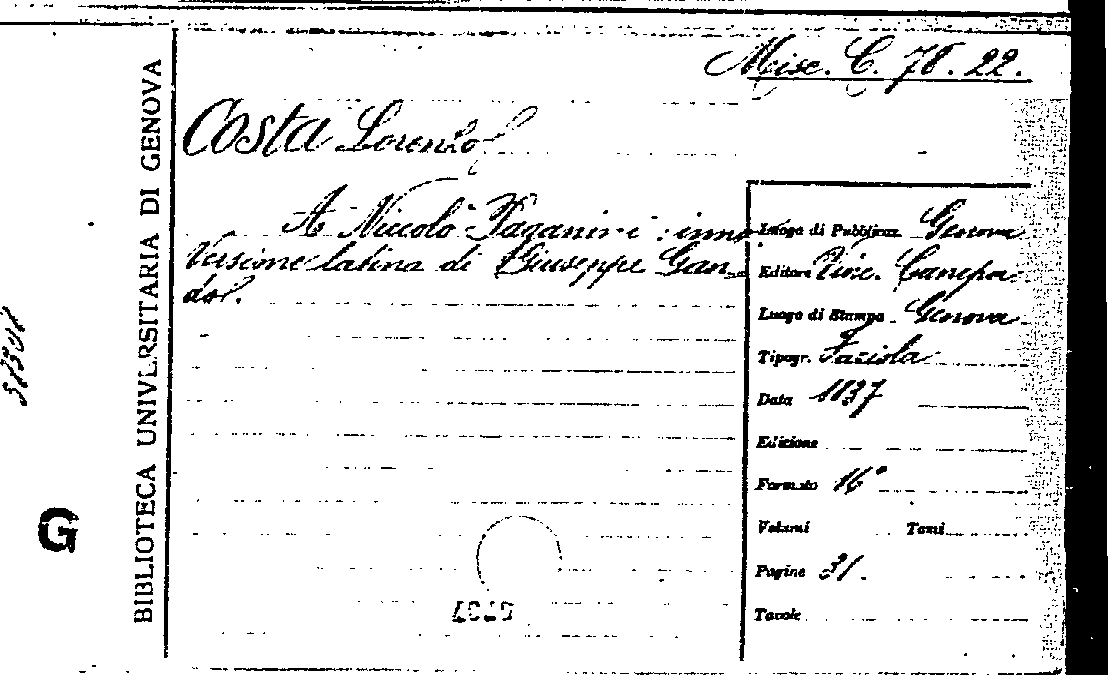 Misc. C. 78. 22.
Costa Lorenzo
A Niccolò Paganini: inno
Versione latina di Giuseppe Gan-
dol.
Luogo di Pubblicaz. Genova
Editore Vinc. Canepa
Luogo di Stampa Genova
Tipogr. Faziola
Data 1837
Edizione
Formato 16°
Volumi Tomi
Pagine 31.
Tavole
BIBLIOTECA UNIVERSITARIA DI GENOVA
G